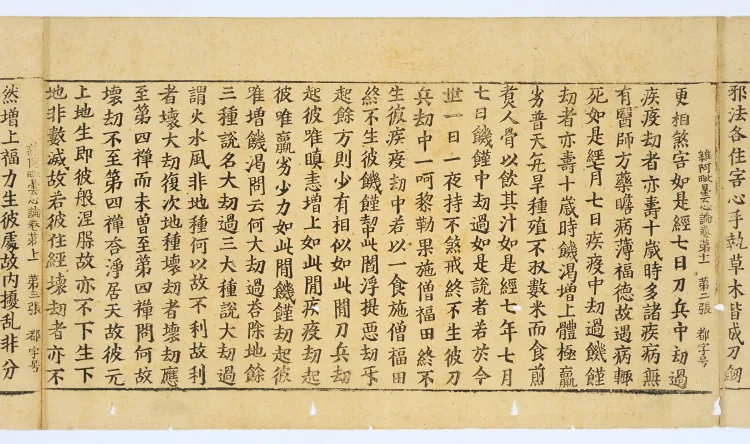 邪法各住害心手執草木皆成刀劒
雜阿毗曇心論卷第十一 第二張 都字号
更相煞害如是經七日刀兵中劫過
疾疫劫者亦壽十歲時多諸疾病無
有醫師方藥瞻病薄福德故遇病輒
死如是經七月七日疾疫中劫過饑饉
劫者亦壽十歲時饑渴增上體極羸
劣普天亢旱種殖不収數米而食煎
煑人骨以飲其汁如是經七年七月
七日饑饉中劫過如是說者若於今
世一日一夜持不煞戒終不生彼刀
兵劫中一呵黎勒果施僧福田終不
生彼疾疫劫中若以一食施僧福田
終不生彼饑饉劫此閻浮提惡劫
起餘方則少有相似如此閒刀兵劫
起彼唯瞋恚增上如此閒疾疫劫起
彼唯羸劣少力如此閒饑饉劫起彼
唯增饑渴問云何大劫過荅除地餘
三種說名大劫過三大種說大劫過
謂火水風非地種何以故不利故利
者壞大劫復次地種壞劫者壞劫應
至第四禪而未曾至第四禪問何故
壞劫不至第四禪荅淨居天故彼无
上地生即彼般涅槃故亦不下生下
地非數滅故若彼住經壞劫者亦不
雜阿毗曇心論卷第十一 第三張 都字号
然增上福力生彼處故内擾乱非分